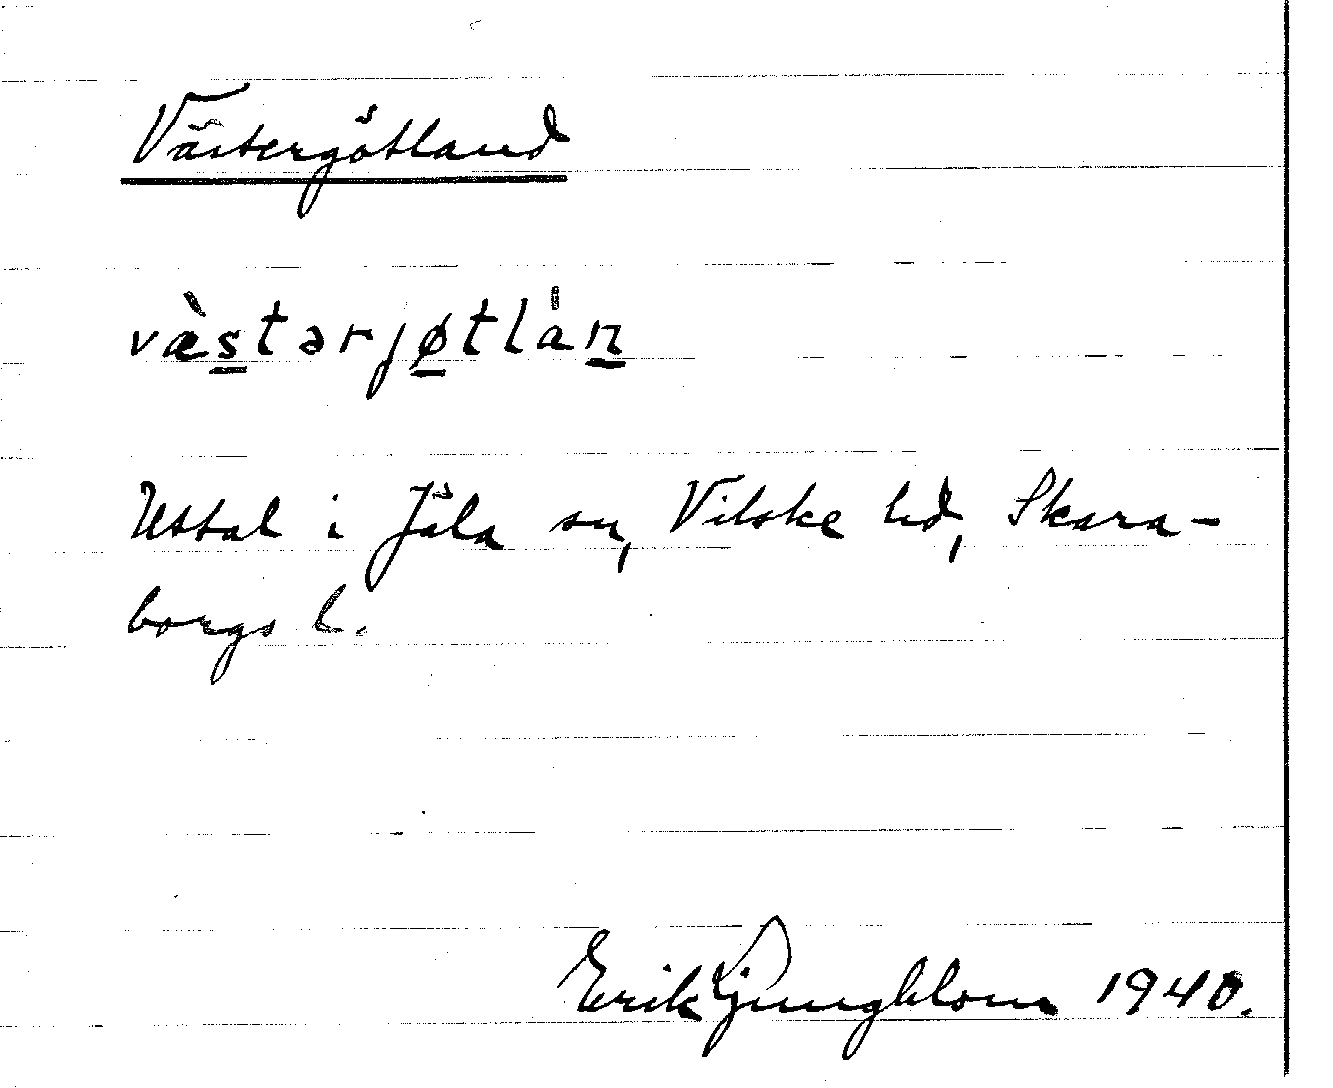 Västergötland
væ̀stərjøtlȧn
Uttal i Jäla sn, Vilske hd, Skara-
borgs l.
Erik Ljungblom 1940.